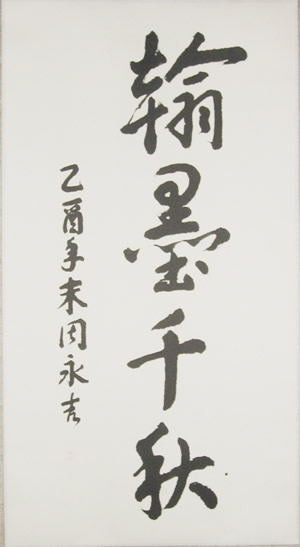 翰墨千秋
乙酉年末周永吉